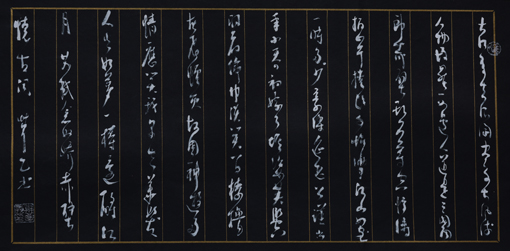 大江東去浪淘盡千古風流
人物故壘西邊人道是三國周
郎赤壁亂石穿空驚濤
拍岸捲起千堆雪江山如畫
一時多少豪傑遙想公瑾當
年小喬初嫁了雄姿英發
羽扇綸巾談笑間檣櫓
灰飛煙滅故國神遊多
情應笑我早生華髮
人生如夢一樽還酹江
月 赤壁
懷古詞